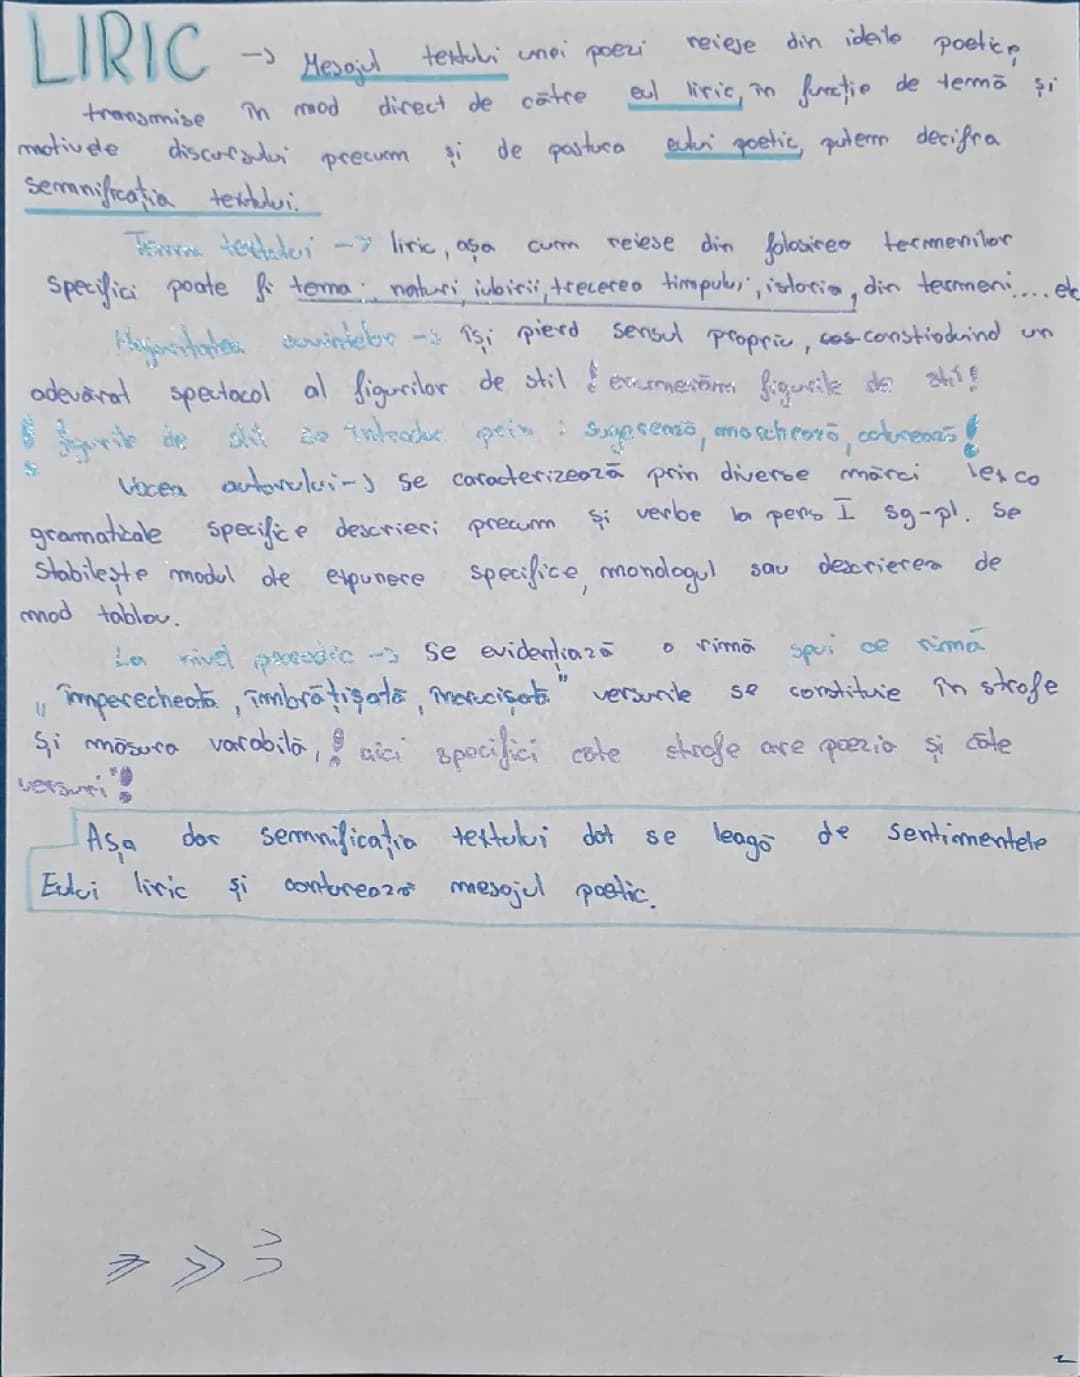 LIRIC -> Mesajul textului unei poezi reiese din ideile poetice,
transmise în mod direct de către eul liric, în funcție de temă și
motivele discursului precum și de postura eului poetic, putem decifra
semnificația textului.
Tema textului -> liric, așa cum reiese din folosirea termenilor
specifici poate fi tema: naturi, iubirii, trecerea timpului, istoria, din termeni.... etc
Majoritatea cuvintelor -> își pierd sensul propriu, constioduind un
adevărat spectacol al figurilor de stil ! enumerăm figurile de stil !
! figurile de stil se introduc prin : sugerează, marchează, conturează !
Vocea autorului -> se caracterizează prin diverse mărci lexco
gramaticale specifice descrieri precum și verbe la pers I sg-pl. Se
stabilește modul de expunere specifice, monologul sau descrierea de
mod tablou.
La nivel prozodic -> se evidențiază o rimă spui ce rimă
„împerecheată, îmbrățișată, încrucișată" versurile se constituie în strofe
și măsura varabilă, ! aici specifici câte strofe are poezia și câte
versuri !
Așa dar semnificația textului dat se leagă de sentimentele
Eului liric și conturează mesajul poetic.